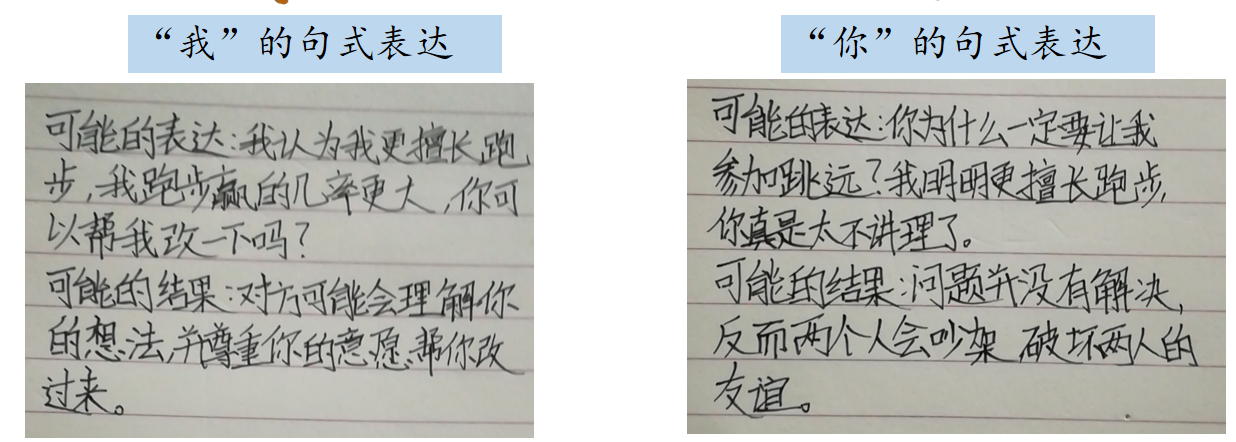 “我”的句式表达
可能的表达:我认为我更擅长跑
步,我跑步赢的几率更大,你可
以帮我改一下吗?
可能的结果:对方可能会理解你
的想法,并尊重你的意愿帮你改
过来。
“你”的句式表达
可能的表达:你为什么一定要让我
参加跳远?我明明更擅长跑步,
你真是太不讲理了。
可能的结果:问题并没有解决,
反而两个人会吵架 破坏两人的
友谊。